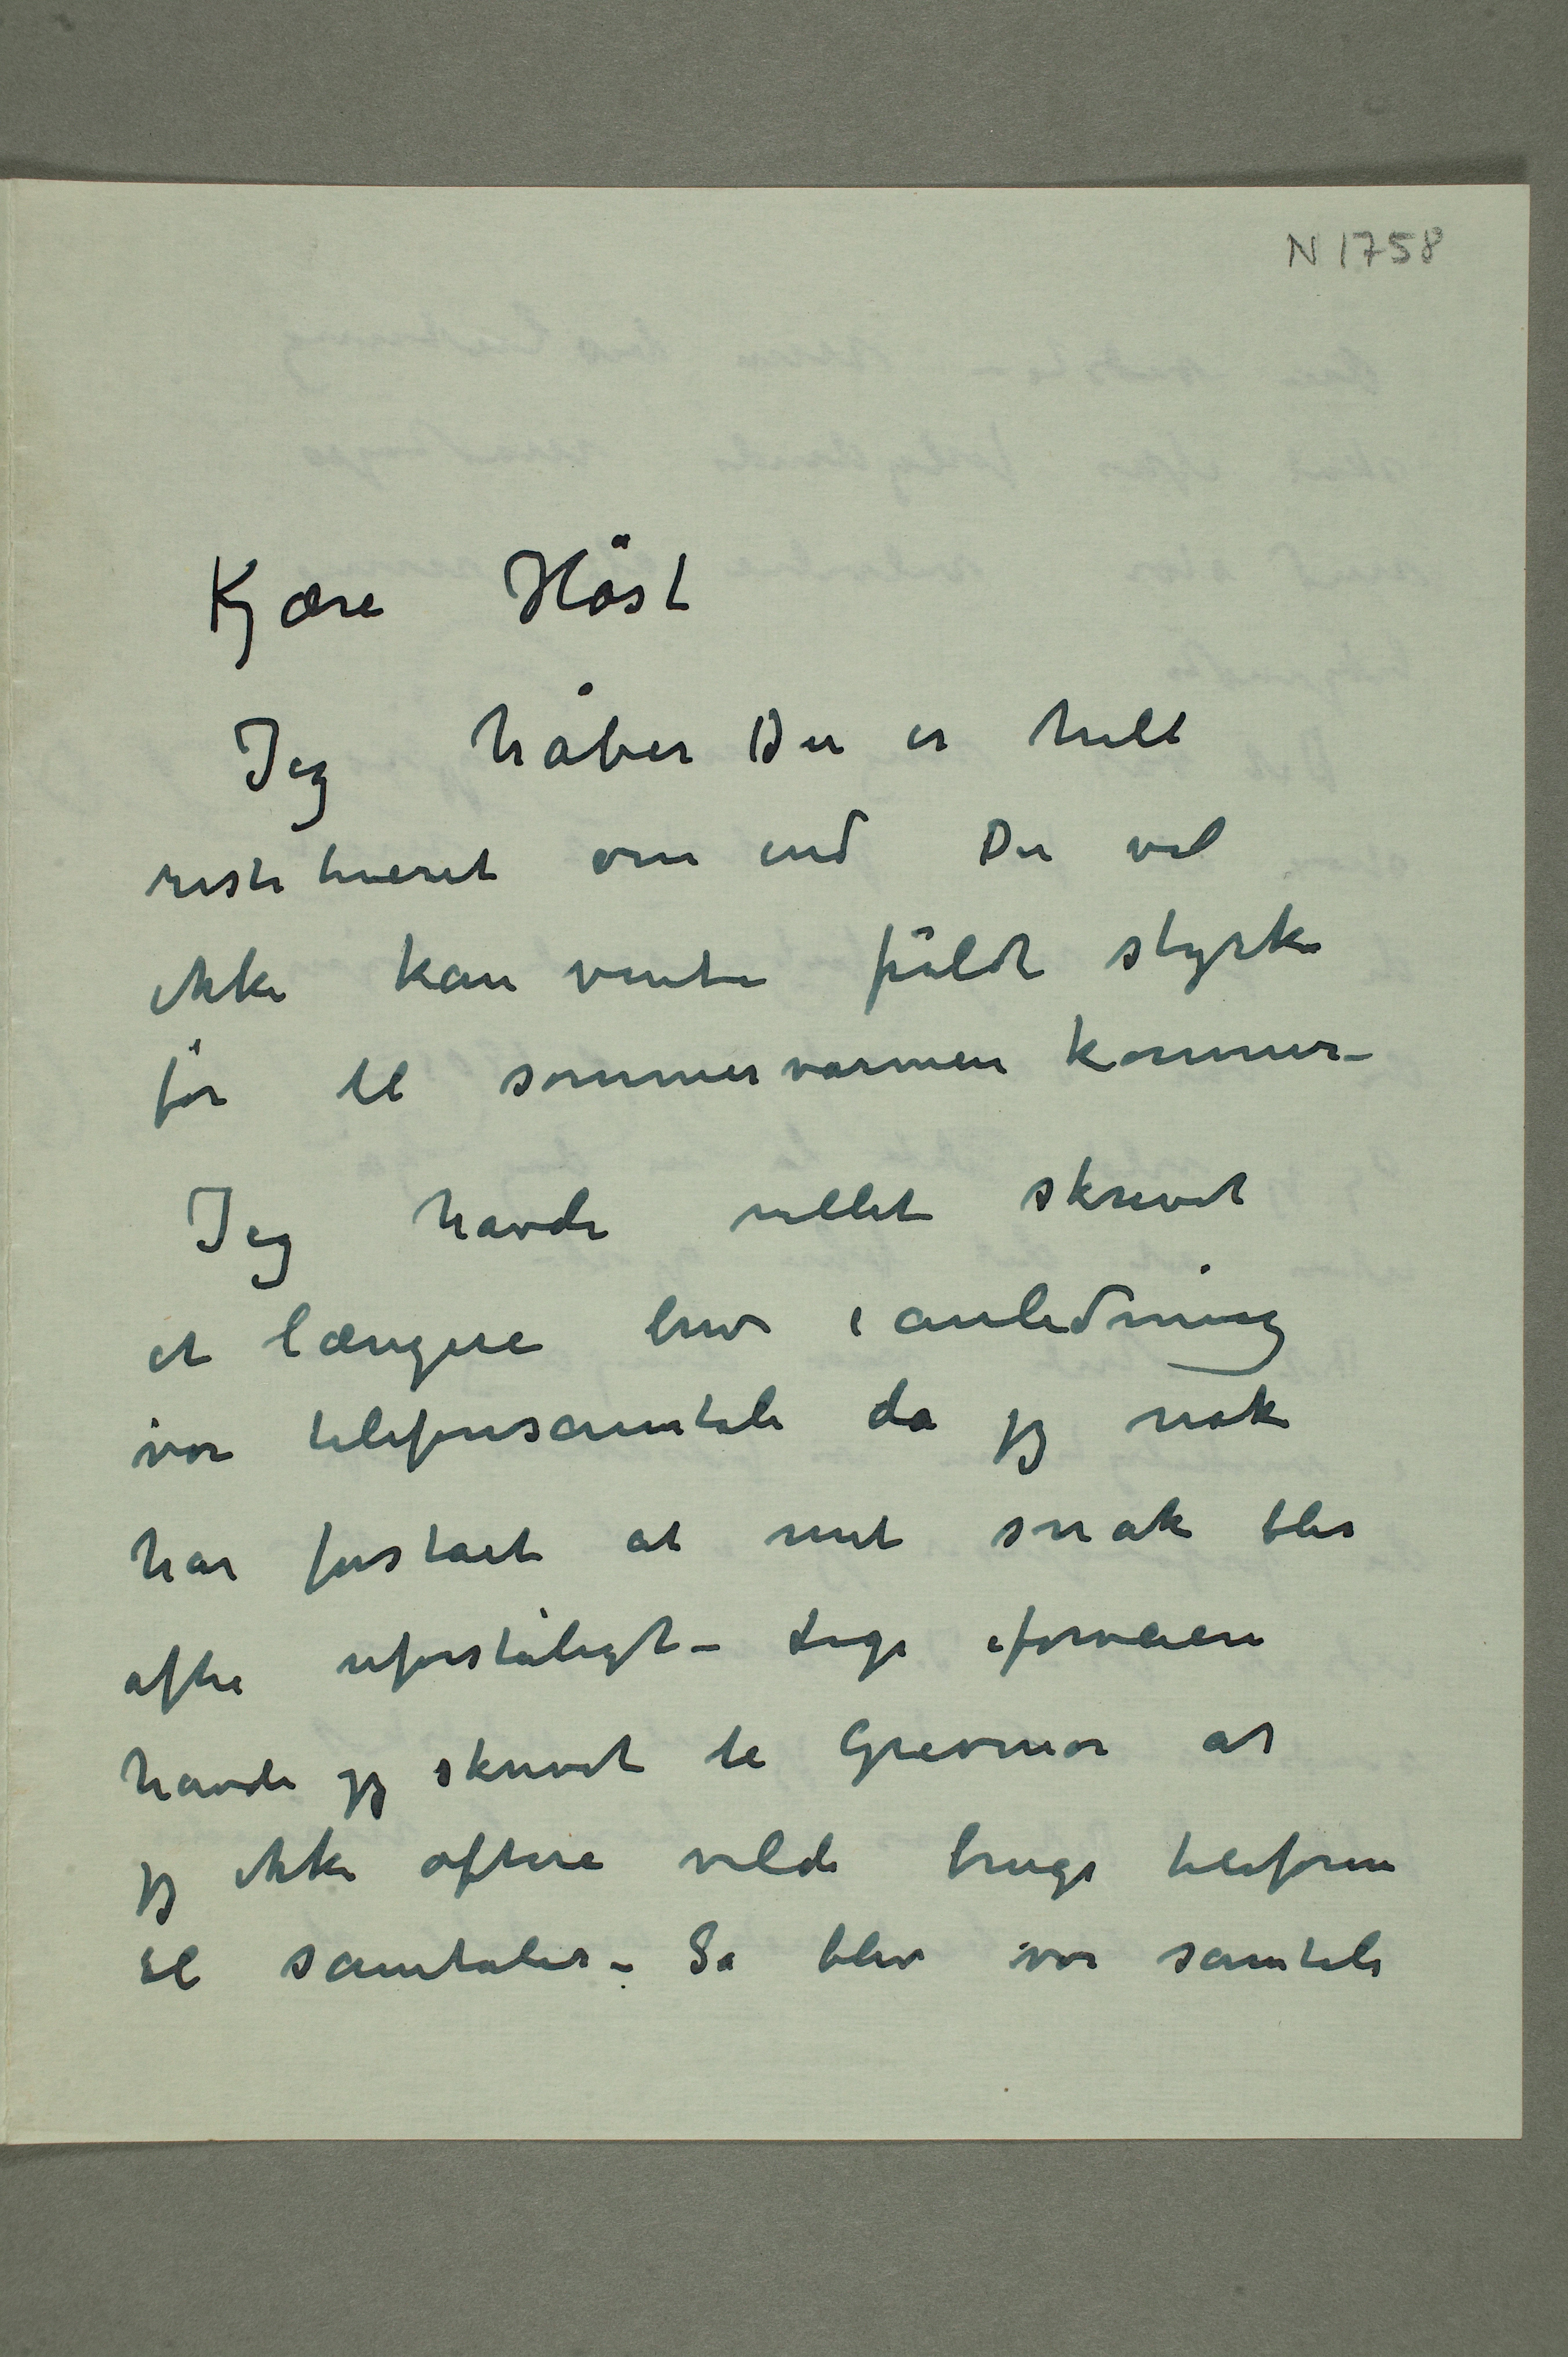 N 1758
Kjære Höst
Jeg håber Du er helt
restitueret om end Du vel
ikke kan vente fuldt styrke
för til sommervarmen kommer –
Jeg havde villet skrevet
et længere brev i anledning
vor telefonsamtale da jeg nok
har forstaet at mit snak blir
ofte uforståligt – Lige iforveien
havde jeg skrevet til Grevinor at
jeg ikke oftere vilde bruge telefonen
til samtaler – Så blev vor samtale